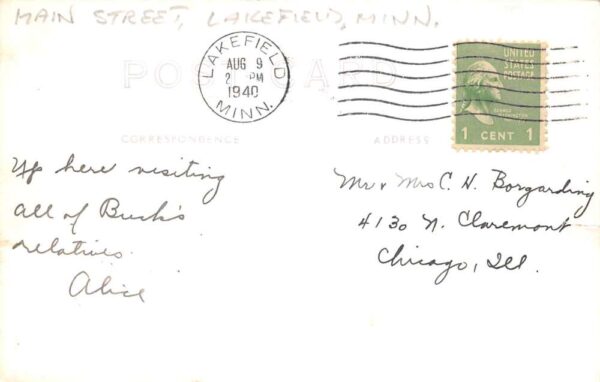 MAIN STREET, LAKEFIELD, MINN.
POST CARD
LAKEFIELD
AUG 9
2 PM
1940
MINN.
UNITED
STATES
POSTAGE
GEORGE
WASHINGTON
1 CENT 1
CORRESPONDENCE
ADDRESS
Up here visiting
all of Buck's
relatives.
Alice
Mr & Mrs C. H. Borgarding
4130 N. Claremont
Chicago, Ill.